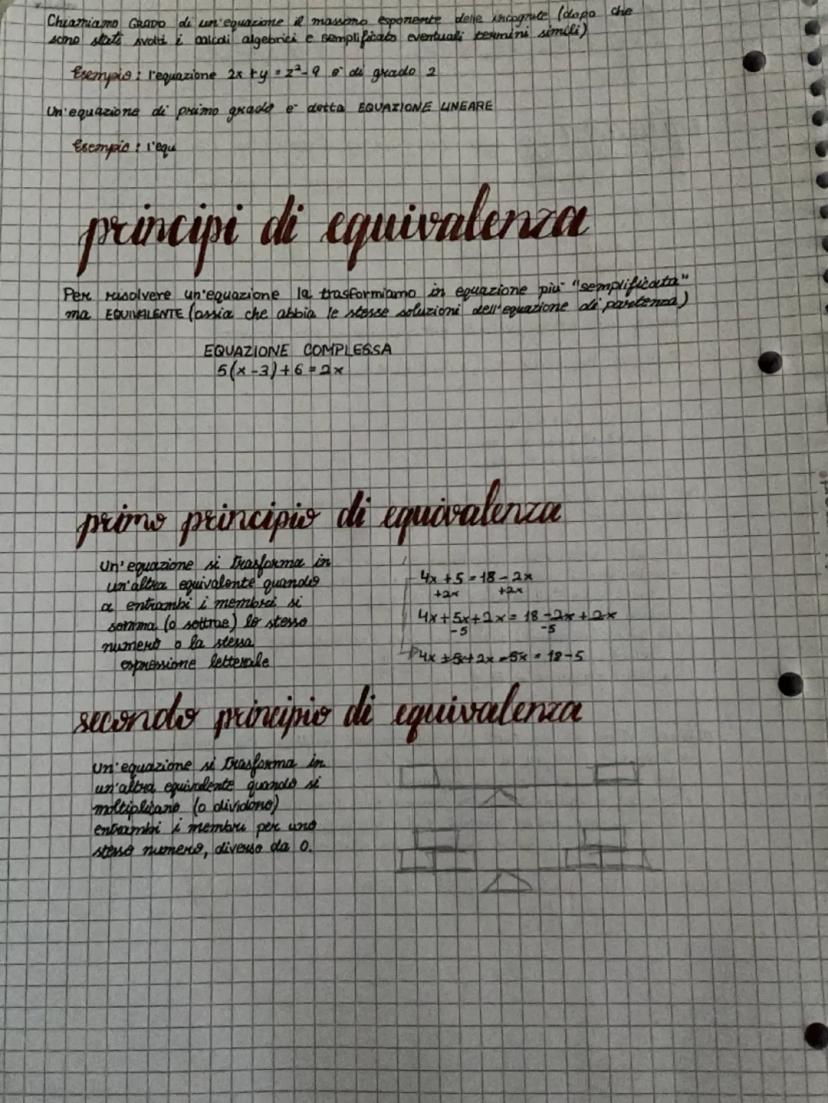 Chiamiamo GRADO di un'equazione il massimo esponente delle incognite (dopo che
sono stati svolti i calcoli algebrici e semplificato eventuali termini simili)
Esempio: l'equazione 2x + y = z² - 9 è di grado 2
Un'equazione di primo grado è detta EQUAZIONE LINEARE
Esempio: l'equ
principi di equivalenza
Per risolvere un'equazione la trasformiamo in equazione più "semplificata"
ma EQUIVALENTE (ossia che abbia le stesse soluzioni dell'equazione di partenza)
EQUAZIONE COMPLESSA
5(x-3)+6=2x
primo principio di equivalenza
Un'equazione si trasforma in
un'altra equivalente quando
a entrambi i membri si
somma (o sottrae) lo stesso
numero o la stessa
espressione letterale
4x + 5 = 18 - 2x
+2x +2x
4x + 5x + 2x = 18 - 2x + 2x
-5 -5
4x + 5x + 2x - 5x = 18 - 5
secondo principio di equivalenza
Un'equazione si trasforma in
un'altra equivalente quando si
moltiplicano (o dividono)
entrambi i membri per uno
stesso numero, diverso da 0.